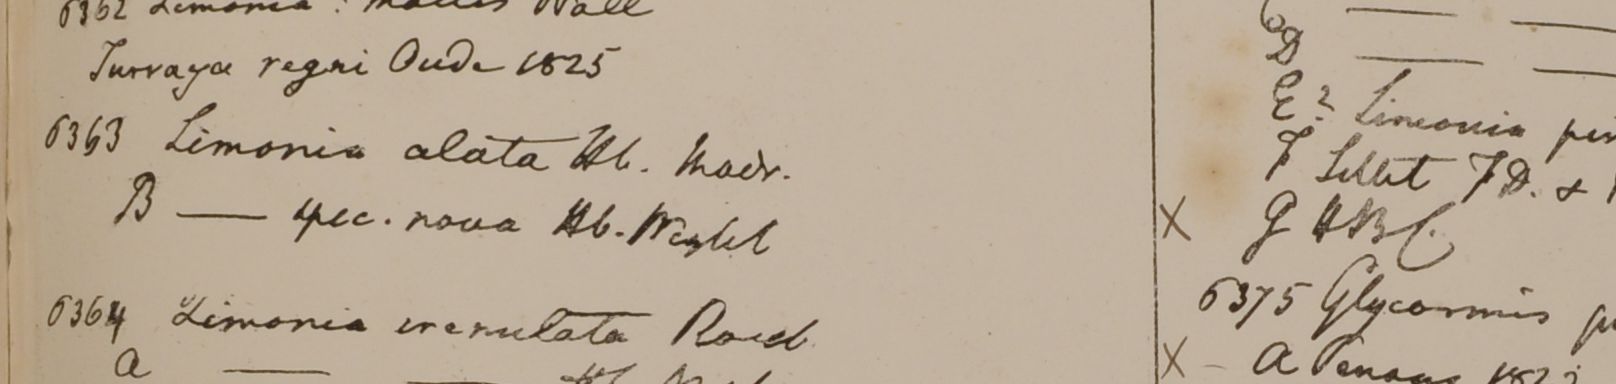 6362 Limonia ? Wall
Turraya regni Oude 1825
6363 Limonia alata Hb. Madr.
B — spec. nova Hb. Wight
6364 Limonia crenulata Roxb
a —
D — —
E? Limonia
F Sillet FD. &
X G HBC.
6375 Glycosmis
X - A Penang